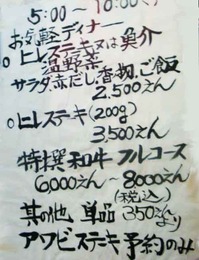 5:00～10:00
お気軽ディナー
○ヒレステキ又は魚介
温野菜
サラダ、赤だし、香物、ご飯
2,500えん
○ヒレステキ(200g)
3,500えん
特撰和牛フルコース
6,000えん～8000えん
(税込)
其の他 単品 350えんより
アワビステキ予約のみ